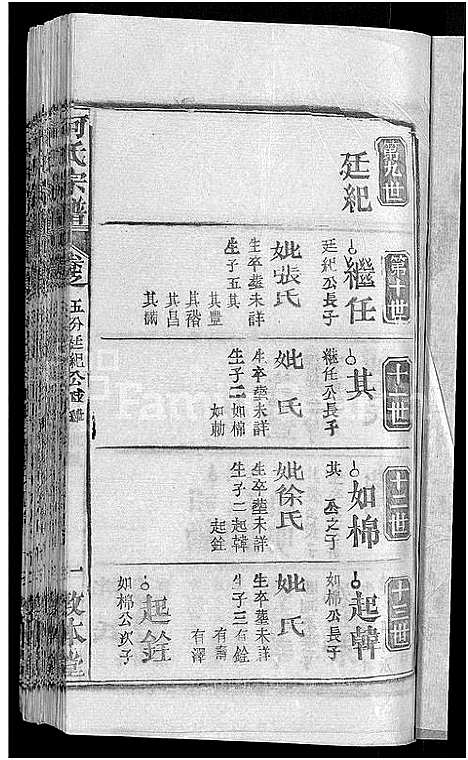 第九世
廷紀
第十世
繼任
廷紀公長子
妣張氏
生卒塟未詳
生子五其
其豐
其裕
其昌
十一世
其
繼任公長子
妣 氏
生卒塟未詳
生子二如棉
如勑
十二世
如棉
其 公之子
妣徐氏
生卒塟未詳
生子二起韓
起銓
十三世
起韓
如棉公長子
妣 氏
生卒塟未詳
生子三有銓
有澤
起銓
如棉公次子
何氏宗譜
五分廷紀公
一
敦本堂